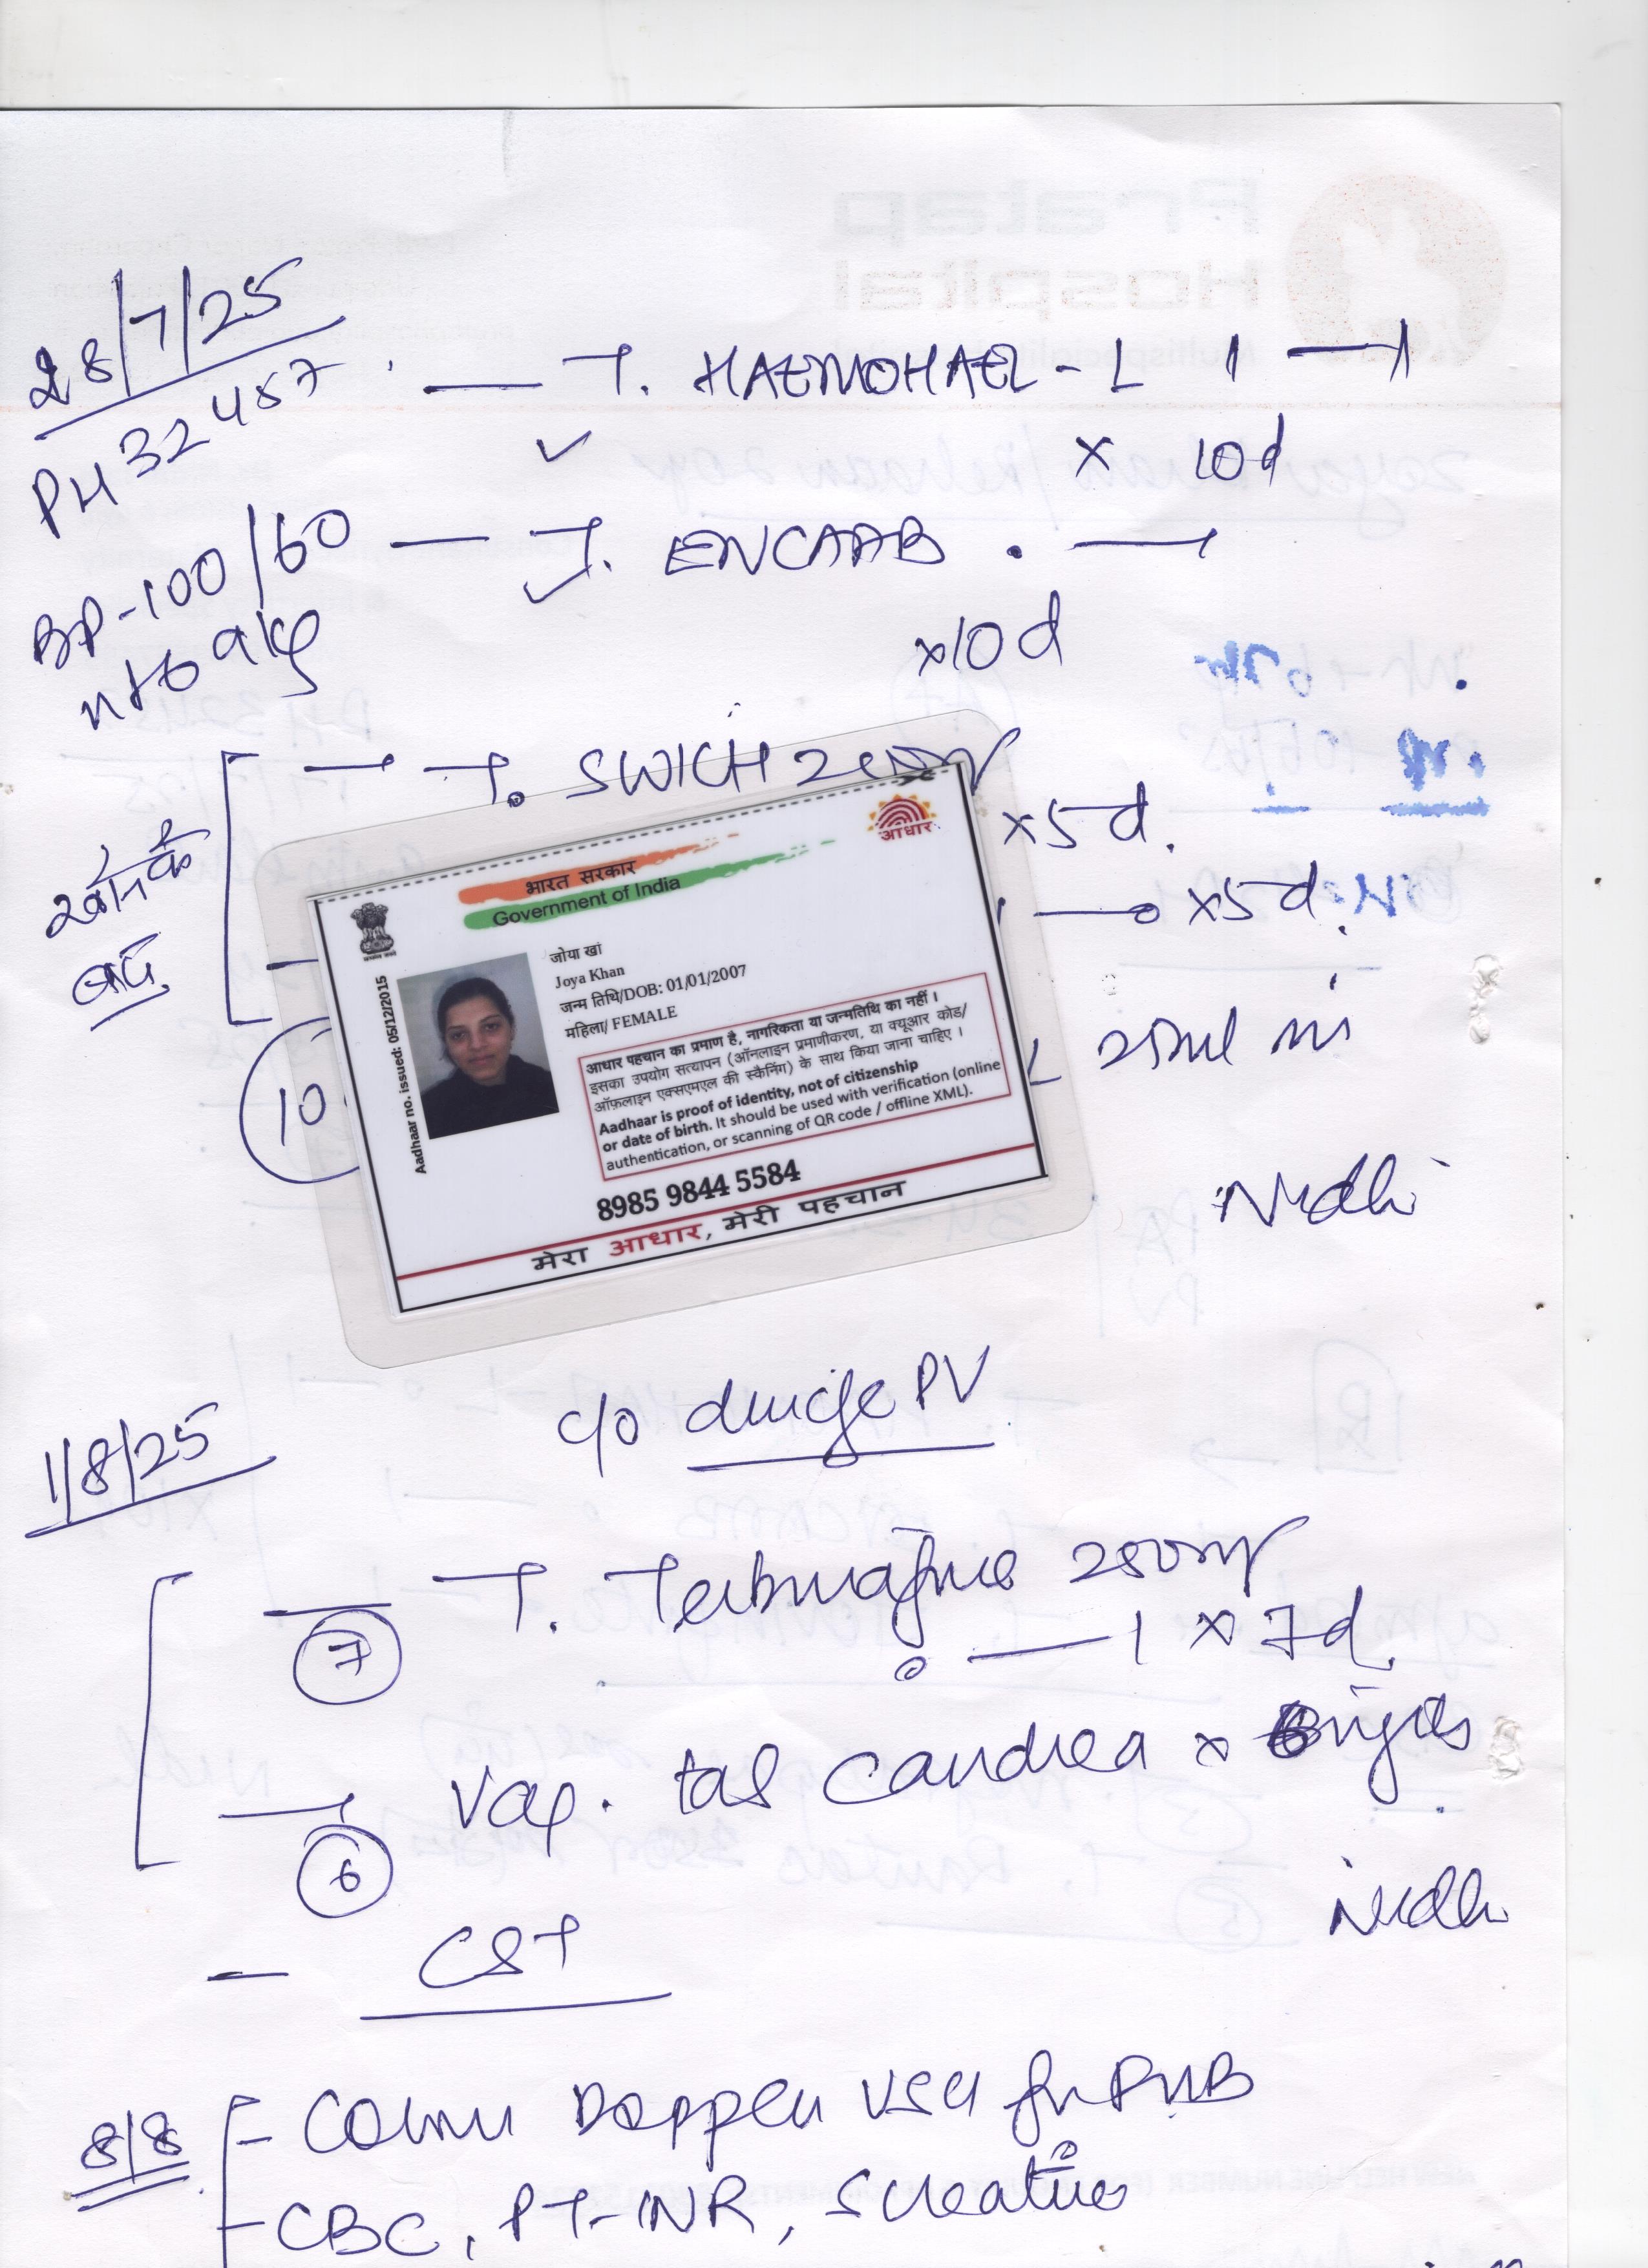 28/7/25
PH 32457
BP-100/60
— T. HAEMOHAEL - L 1 — 1
x 10d
— T. ENCARB . —
x10d
— T. SWICH 200mg
x5d.
— 0 x5d.
खाने के
बाद
10
25ml in
Nidhi
भारत सरकार
Government of India
आधार
Aadhaar no. issued: 05/12/2015
जोया खां
Joya Khan
जन्म तिथि/DOB: 01/01/2007
महिला/ FEMALE
आधार पहचान का प्रमाण है, नागरिकता या जन्मतिथि का नहीं ।
इसका उपयोग सत्यापन (ऑनलाइन प्रमाणीकरण, या क्यूआर कोड/
ऑफ़लाइन एक्सएमएल की स्कैनिंग) के साथ किया जाना चाहिए ।
Aadhaar is proof of identity, not of citizenship
or date of birth. It should be used with verification (online
authentication, or scanning of QR code / offline XML).
8985 9844 5584
मेरा आधार, मेरी पहचान
1/8/25
c/o PV
— T. 250mg
7
0 — 1 x 7d
— Vag. tab x 6
6
Nidhi
— CST
8/8
- Doppler USG for
- CBC, PT-INR, S creatine